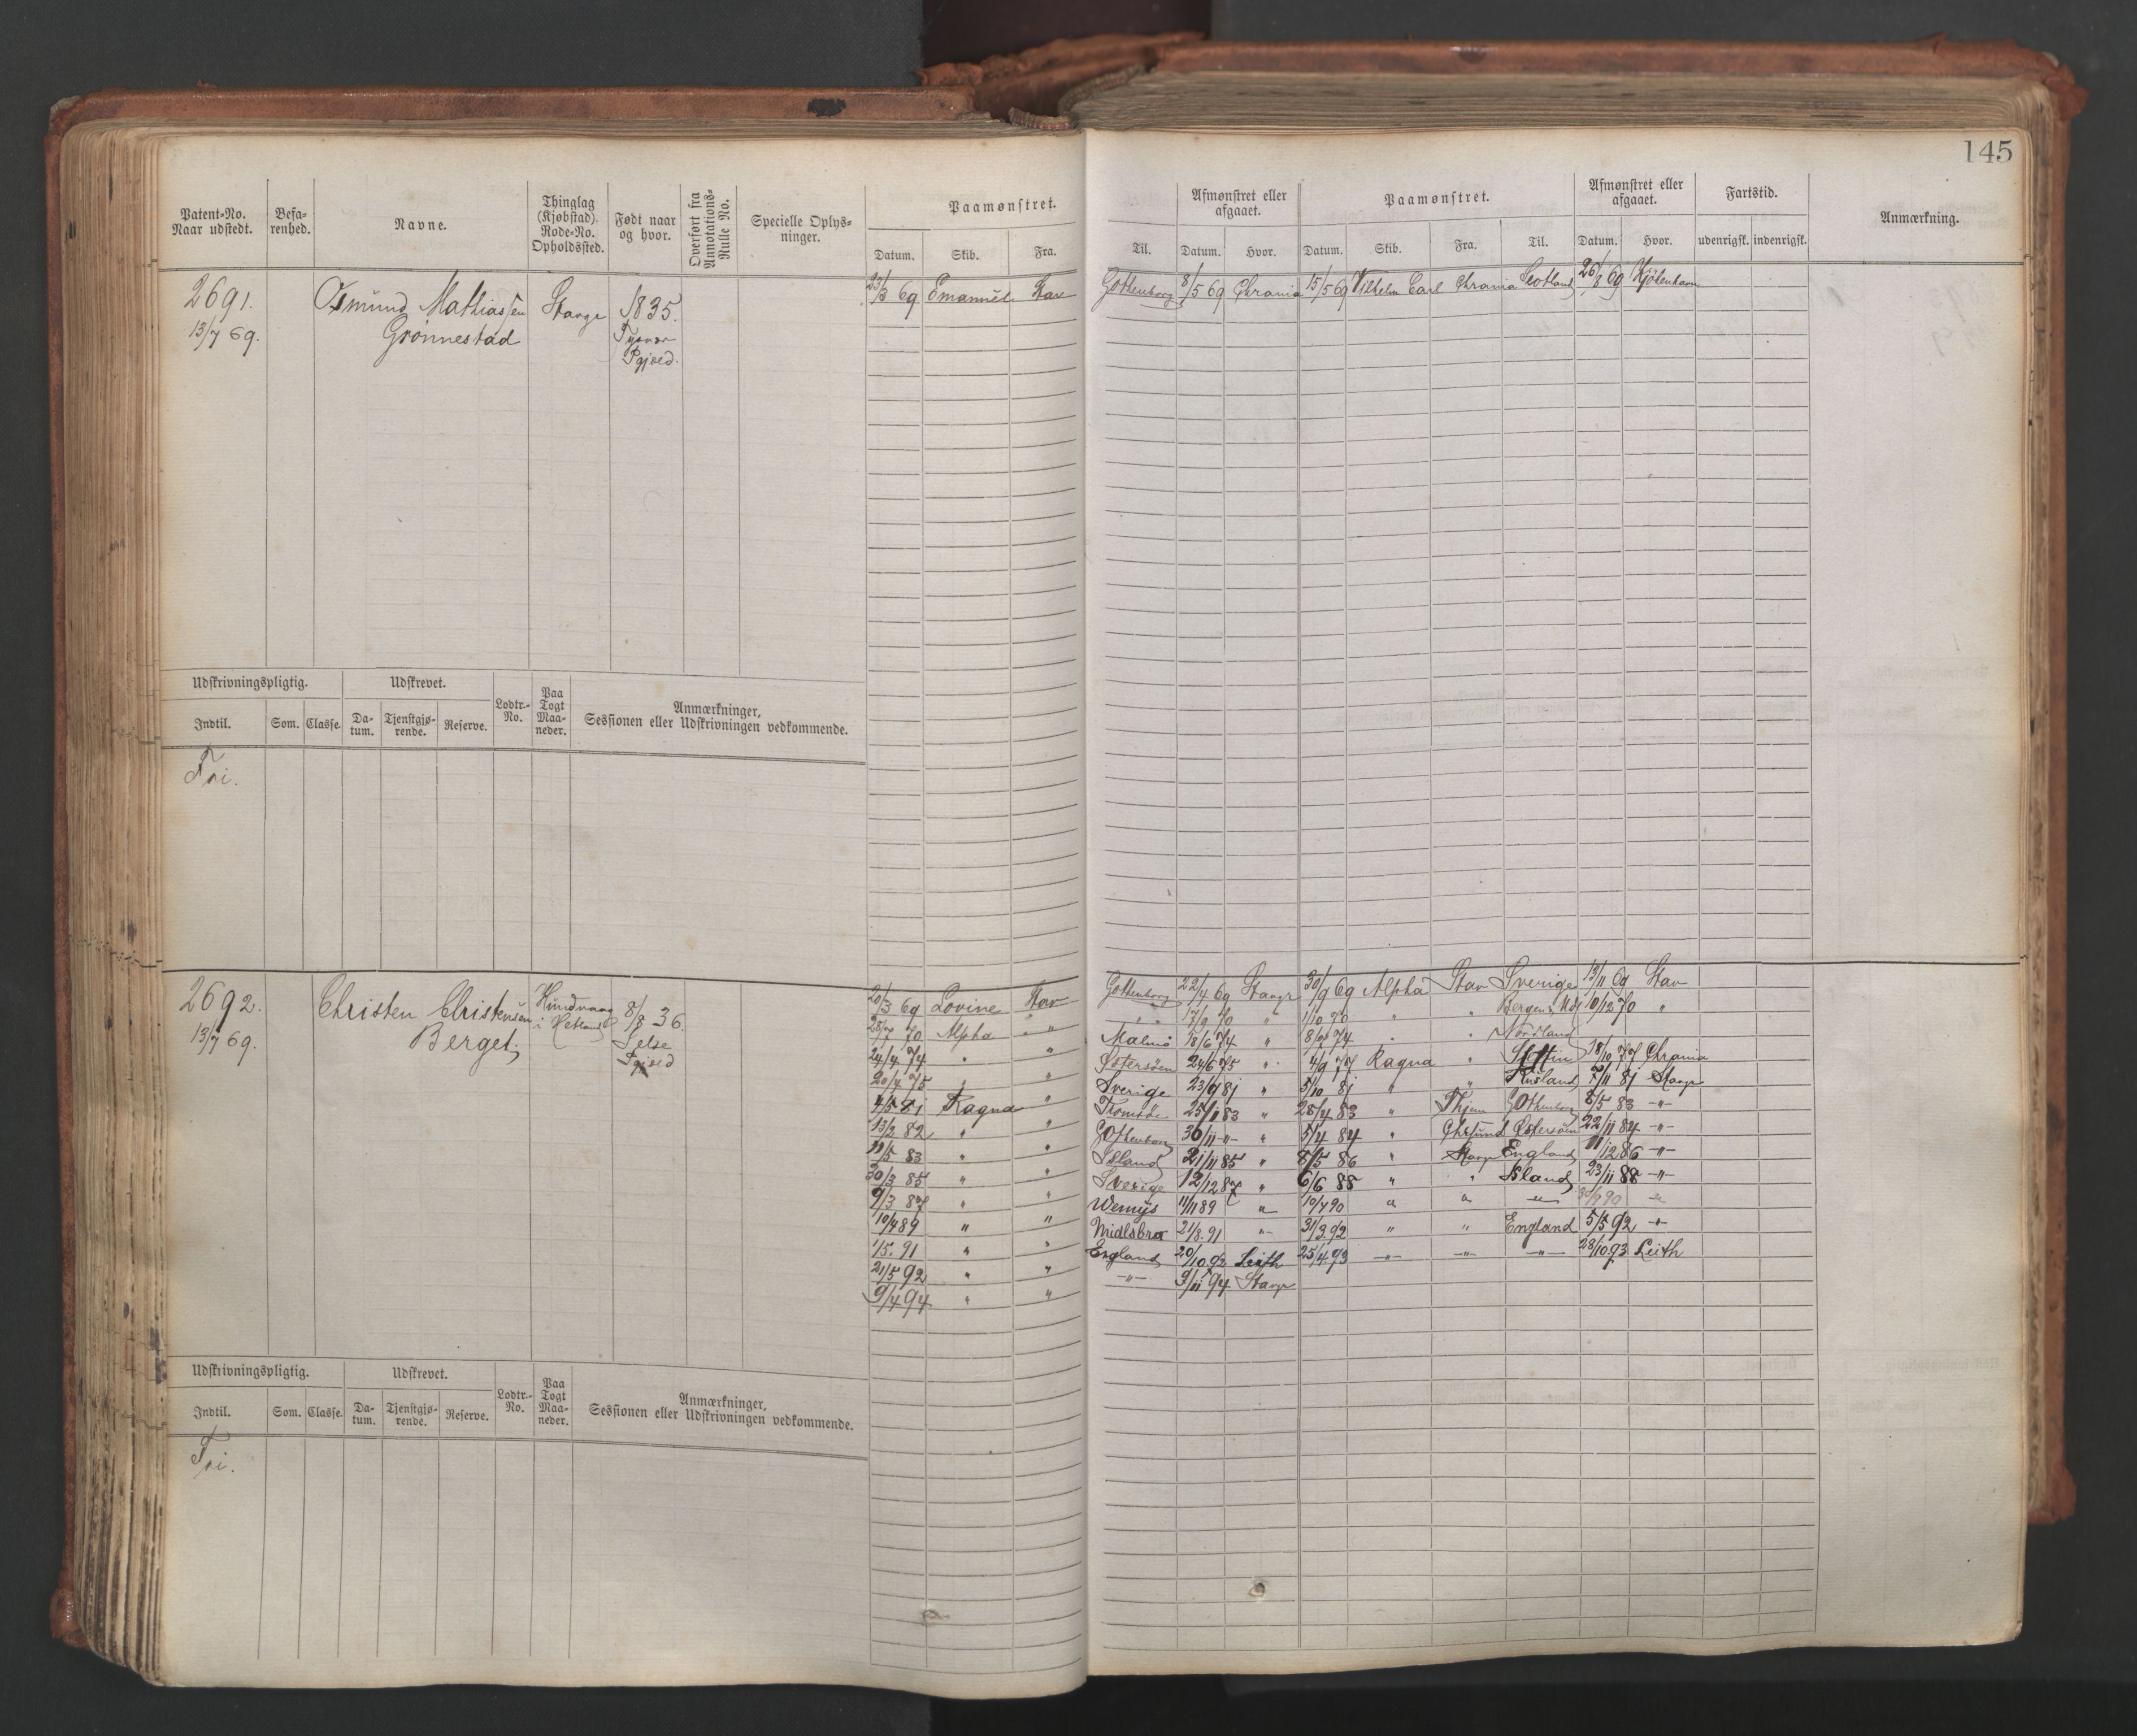 145
Patent-No. Naar udstedt. Befa-renhed. Navne. Thinglag (Kjøbstad). Rode-No. Opholdssted. Født naar og hvor. Overført fra Annotations-Rulle No. Specielle Oplys-ninger. Paamønstret. Datum. Skib. Fra.
Til. Afmønstret eller afgaaet. Datum. Hvor. Paamønstret. Datum. Skib. Fra. Til. Afmønstret eller afgaaet. Datum. Hvor. Fartstid. udenrigsk. indenrigsk. Anmærkning.
2691. Osmund Mathiassen Stavgr 1835. 23/3 69 Emanuel Stav Gottenborg 8/5 69 Chrania 15/5 69 Vilhelm Carl Chrania Scotland 26/8 69 Kjöbenhavn
13/7 69. Grönnestad Tysvær
Pgjæld.
Udskrivningspligtig. Udskrevet. Lodtr.-No. Paa Togt Maa-neder. Anmærkninger, Sessionen eller Udskrivningen vedkommende.
Indtil. Som. Classe. Da-tum. Tjenstgjø-rende. Reserve.
Fri.
2692. Christen Christensen Hundvaag 8/8 36. 20/3 69 Lovine Stav Gottenborg 22/4 69 Stavgr 30/9 69 Alpha Stav Sverige 13/11 69 Stav
13/7 69. Berget i Hetland Pgjæld 28/7 70 Alpha " " 17/9 70 " 1/10 70 " " Bergen 10/12 70 "
24/4 74 " " Malmö 18/6 74 " 8/7 74 " " Nordland
20/4 75 " " Östersöen 24/6 75 " 4/9 Ragna " Stettin 18/10 77 Chrania
4/5 81 Ragna " Sverige 23/9 81 " 5/10 81 " " Rusland 7/11 81 Stavgr
13/2 82 " " Tromsöe 25/11 83 " 28/4 83 " Gothenborg 8/5 83 -"-
11/5 83 " " Gothenborg 30/11 -"- " 5/4 84 " Chrsund Östersöen 22/11 84 -"-
30/3 85 " " Island 21/11 85 " 8/5 86 " Stavgr England 11/12 86 -"-
9/3 87 " " Sverige 12/12 87 " 6/6 88 " " Island 23/11 88 -"-
10/4 89 " " Wemys 11/11 89 " 10/4 90 " " -"- 30/9 90 -"-
1/5. 91 " " Midlsbro 21/8. 91 "- 31/3. 92 " " England 5/5 92 -"-
21/5 92 " " England 20/10. 92 Leith 25/4. 93 -"- -"- -"- 28/10. 93 Leith
9/4 94 " " -"- 9/11 94 Stavgr
Udskrivningspligtig. Udskrevet. Lodtr.-No. Paa Togt Maa-neder. Anmærkninger, Sessionen eller Udskrivningen vedkommende.
Indtil. Som. Classe. Da-tum. Tjenstgjø-rende. Reserve.
Fri.